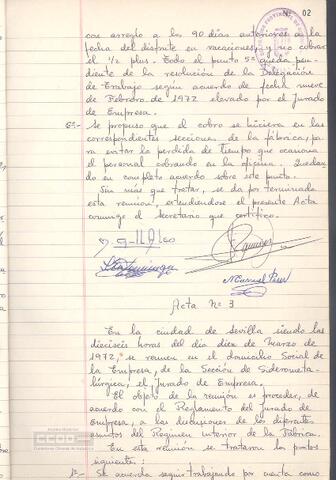 Nº 02
con arreglo a los 90 días anteriores a la
fecha del disfrute en vacaciones, y no cobrar
el 1/2 plus. Todo el punto 5º queda pen-
diente de la resolución de la Delegación
de Trabajo según acuerdo de fecha nueve
de Febrero de 1972 elevado por el Jurado
de Empresa.
6º.- Se propuso que el cobro se hiciera en las
correspondientes secciones de la fábrica, pa
ra evitar la perdida de tiempo que ocasiona
el personal cobrando en la oficina. Quedan
do en completo acuerdo sobre este punto.
Sin más que tratar, se da por terminada
esta reunión, extendiendose el presente Acta
conmigo el secretario que certifico.
Ramírez
Manuel
Acta Nº 3
En la ciudad de Sevilla siendo las
dieciséis horas del día diez de Marzo de
1972, se reunen en el domicilio Social de
la Empresa, de la Sección de Siderometa-
lúrgica, el Jurado de Empresa.
El objeto de la reunión es proceder, de
acuerdo con el Reglamento del Jurado de
Empresa, a las discusiones de los diferentes
asuntos del Régimen interior de la Fábrica.
En esta reunión se trataron los puntos
siguientes:
1º- Se acuerda seguir trabajando por cuenta como
CCOO